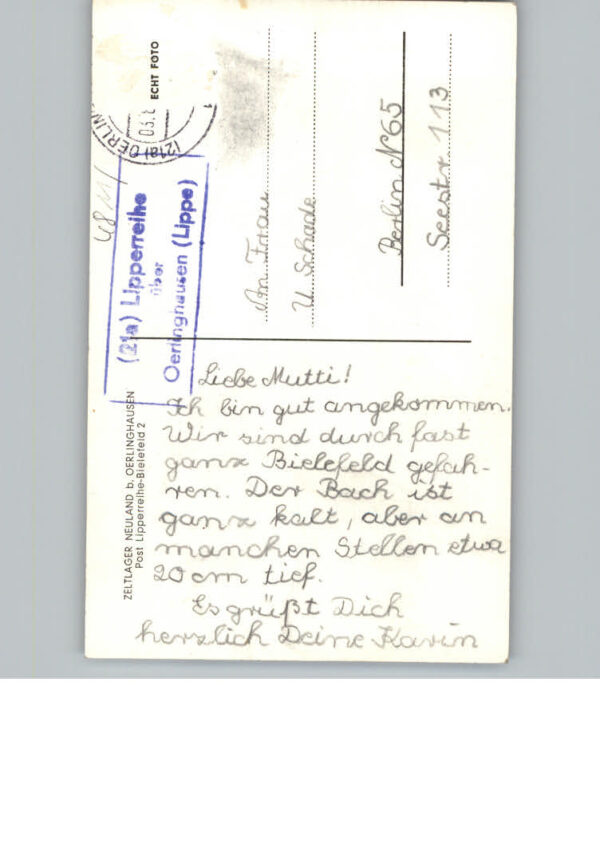 ECHT FOTO
(21a) OERLIN
03.
(21a) Lipperreihe
über
Oerlinghausen (Lippe)
An Frau
U. Schade
Berlin N 65
Seestr. 113
ZELTLAGER NEULAND b. OERLINGHAUSEN
Post Lipperreihe-Bielefeld 2
Liebe Mutti!
Ich bin gut angekommen.
Wir sind durch fast
ganz Bielefeld gefah-
ren. Der Bach ist
ganz kalt, aber an
manchen Stellen etwa
20 cm tief.
Es grüßt Dich
herzlich Deine Karin